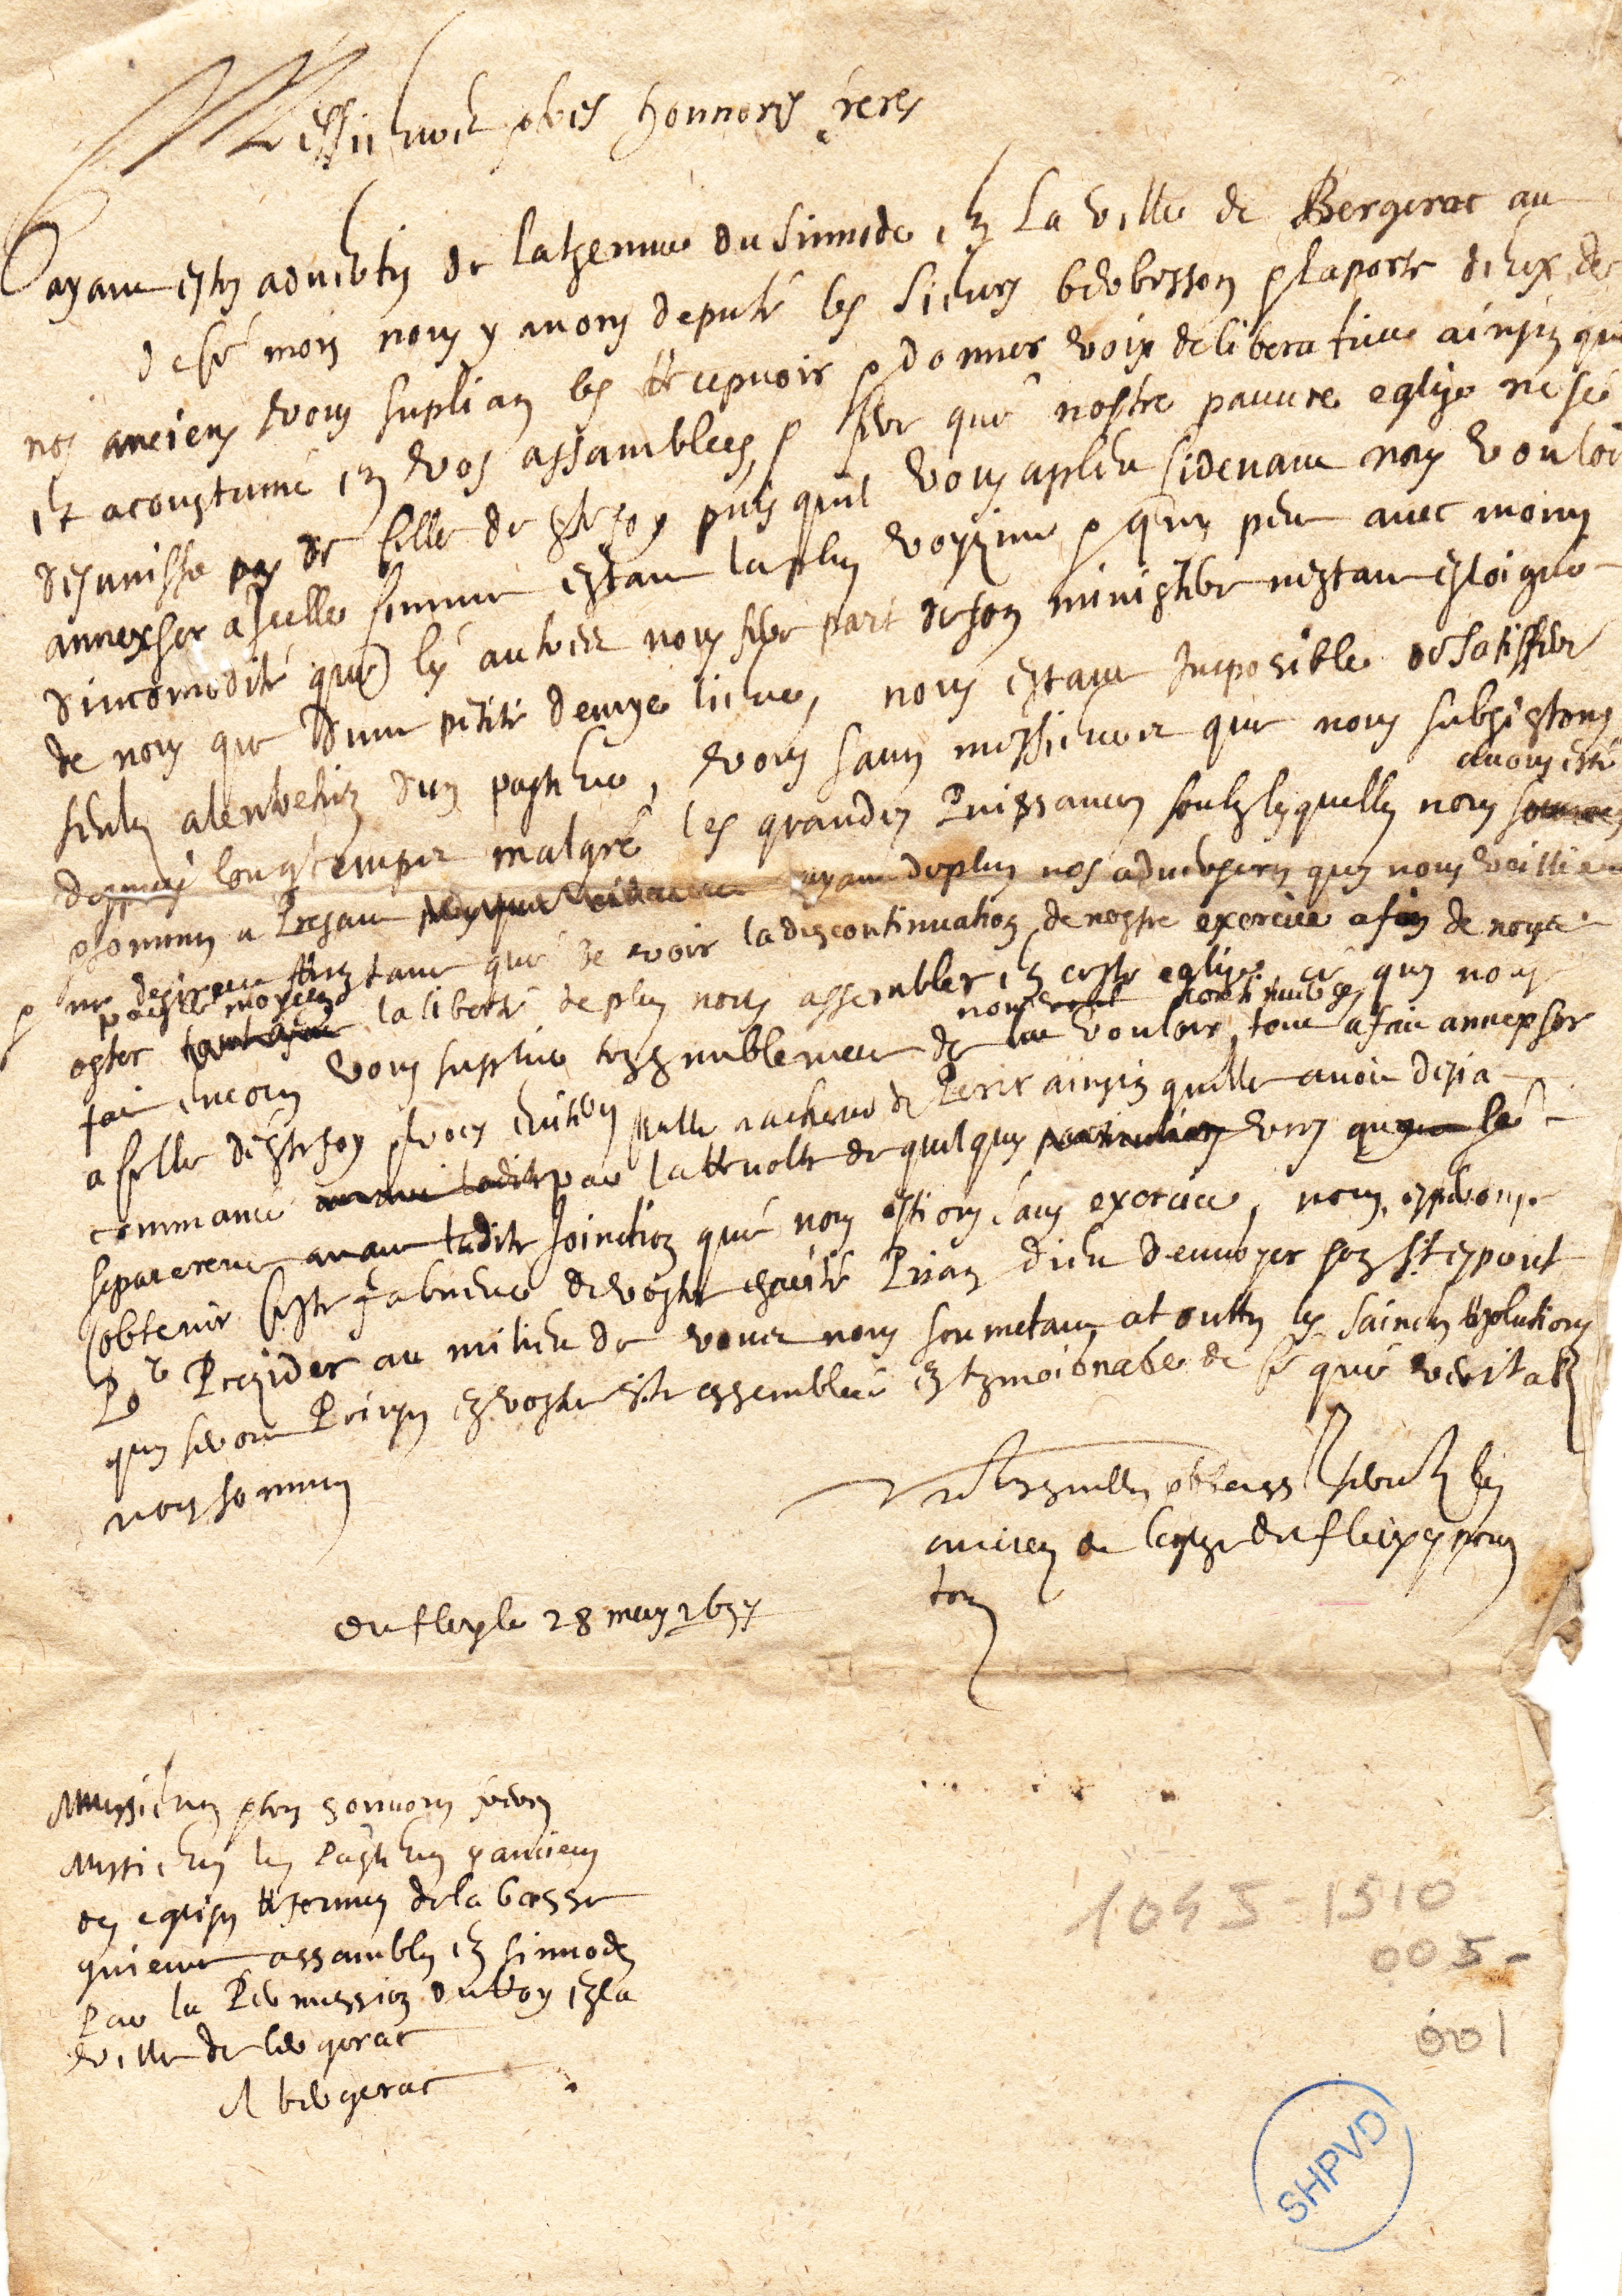 Messieurs et tres honnorés freres
ayant estes advertis de la thenue du sinnode en La ville de Bergerac au
de ce mois nous y avons deputé les sieurs et Laporte deux de
nos anciens vous suplian les recepvoir et donner voix deliberative ainsin que
est acoustumé en vos assamblees, et fere que nostre pauvre eglise ne se
desunisse pas de selle de Ste foy puis quil vous a pleu sidevant nous vouloir
annexser a icelle comme estant la plus voysine et quy peut avec moins
dincomodité que les autres nous fere part de son ministere nestant esloigné
de nous que dune petite demye lieue, nous estant Imposible de satisffere
seuls a lentretien dun pasteur, vous savés messieurs que nous subsistons
avons esté
despuis longtemps malgré les grandes Puissances soubz lesquelles nous sommes
et sommes a Presant ayant de plus nos adversaires quy nous veillient
et ne desirent rien tant que de voir la discontinuation de nostre exercice afin de nous
par se moyen
oster tant afin la liberté de plus nous assembler en ceste eglise, ce quy nous
nous continuer
fait encores vous suplier tres humblement de vouloir tout a fait annexser
a selle de Ste foy et vous eviteres quelle nacheve de Perir ainsin quelle avoit desia
commancé avant ladite par la revolte de quelques particuliers vers
separerent avant ladite Joinction que nous estions sans exercice, nous esperons
obtenir ceste faveur de vostre charité Prian Dieu denvoyer son St esprit
Pr Presider au milieu de vous nous soumetant a toutes les sainctes resolutions
quy seront Prinses en vostre Ste assemblee en tesmoinage de ce que veritab
nous sommes
Vos tres humbles et obeiss serviteurs les
anciens de leglize du fleix et pour
tous
du fleix le 28 may 1657
Messieurs et tres honnorés freres
Messieurs les Pasteurs et anciens
des eglises refformees de la basse
guienne assambles en sinnode
Par la Permission du Roy en la
ville de bergerac
A bergerac
1045-1510
005-
001
SHPVD